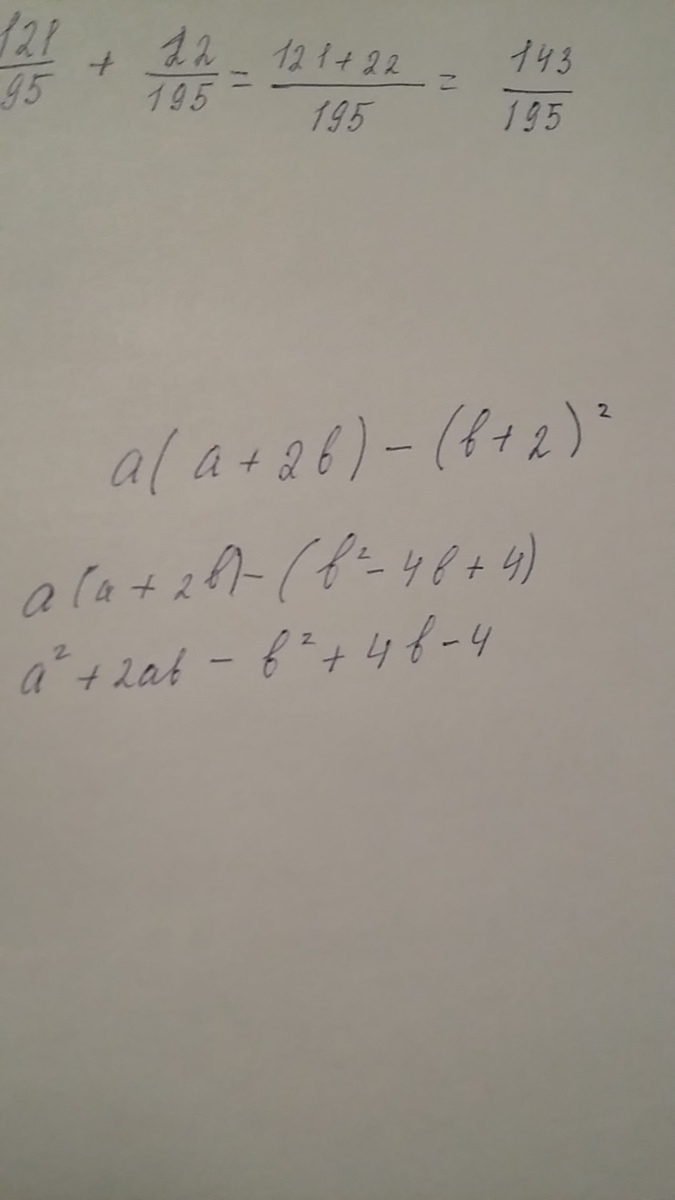 121/95 + 22/195 = 121+22/195 = 143/195
a(a+2b)-(b+2)²
a(a+2b)-(b²-4b+4)
a²+2ab-b²+4b-4